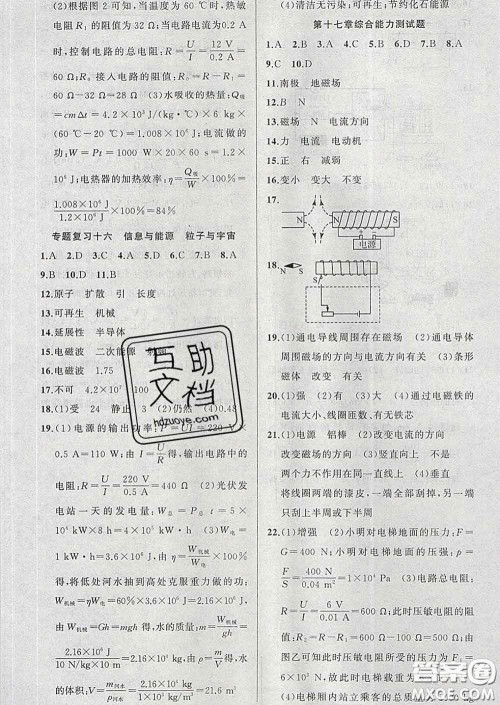 (2)根据图2可知，当温度为60℃时，热敏电
阻R的阻值为32Ω；当电路中电流为0.2 A
时，控制电路的总电阻:R=U/I=12 V/0.2 A
=60Ω；接入电路的阻值:R=R-R₁=60
Ω-32Ω=28Ω (3)水吸收的热量:Q吸
=cmΔt=4.2×10³ J/(kg·℃)×6 kg×
(60℃-20℃)=1.008×10⁶ J；电流做的
功:W=Pt=1000 W×20×60 s=1.2×
10⁶ J；电热器的加热效率:η=Q吸/W×100%=
1.008×10⁶ J/1.2×10⁶ J×100%=84%
专题复习十六 信息与能源 粒子与宇宙
1.A 2.D 3.C 4.A 5.D 6.D 7.B 8.A
9.B 10.D 11.B
12.原子 扩散 引 长度
13.可再生 机械
14.延展性 半导体
15.电磁波 二次能源
16.电磁波 1.75
17.不可 4.2×10⁷ 100
18.(1)受 24 静止 3 (2)仍然 (4)0.48
19.(1)电源的输出功率:P=UI=220 V×
0.5 A=110 W；由I=U/R得，输出电路中的
电阻:R=U/I=220 V/0.5 A=440Ω (2)光伏发
电站一天的发电量:W总=P总t=5×10⁴
kW×8 h=4×10⁵ kW·h (3)W电=
1 kW·h=3.6×10⁶ J；由η=W机械/W电×100%
得，将低处河水抽到高处克服重力做的功:
W机械=ηW电=60%×3.6×10⁶ J=2.16×10⁶ J
由W机械=Gh=mgh得，水的质量:m=W机械/gh=
2.16×10⁶ J/10 N/kg×10 m=2.16×10⁴ kg，由ρ=m/V得，
水的体积:V=m河水/ρ河水=2.16×10⁴ kg/1.0×10³ kg/m³=21.6 m³
(4)清洁无污染；可再生；节约化石能源
第十七章综合能力测试题
1.A 2.B 3.A 4.B 5.D 6.C 7.D 8.A
9.C 10.D
11.南极 地磁场
12.B N
13.磁场 N 电流方向
14.力 电流 电动机
15.正 右 减弱
16.变小 变大 不变
17.
N N S
电源
18.
S
19.(1)通电导线周围存在磁场 (2)通电导体
周围磁场的方向与电流方向有关 (3)条形
磁体 电流方向
20.(1)吸引大头针数目 (2)通过电磁铁的
电流大小、线圈匝数，有无铁芯
21.(1)电源 铝棒 (2)改变电流的方向
改变磁场的方向 (3)竖直向上 不是
两个力不作用在同一直线上 (4)换向器
将线圈两端的漆皮，一端全部刮掉，另一端
只刮上半周或下半周
22.(1)增强 (2)小明对电梯地面的压力:F=
G=400 N；小明对电梯地面的压强:p=
F/S=400 N/0.04 m²=1×10⁴ Pa (3)电路总电阻:
R=U/I=6 V/0.01 A=600Ω；此时压敏电阻的
阻值:R压=R-R₁=600Ω-200Ω=400Ω；由
图乙可知此时压敏电阻所受的压力为
(4)电梯厢内站立乘客的总质量为
互助文档
hdzuoye.com
MXQE.COM